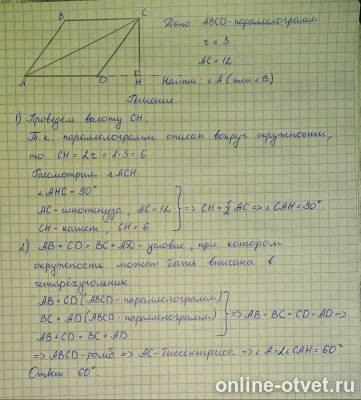 B C
A D H
Дано: ABCD-параллелограмм
r = 3
AC = 12
Найти: ∠A (или ∠B)
Решение.
1) Проведём высоту CH.
Т.к. параллелограмм описан вокруг окружности,
то CH = 2r = 2·3 = 6
Рассмотрим △ACH
∠AHC = 90°
AC - гипотенуза, AC = 12
CH - катет, CH = 6
} => CH = 1/2 AC => ∠CAH = 30°
2) AB + CD = BC + AD - условие, при котором
окружность может быть вписана в
четырёхугольник
AB = CD (ABCD - параллелограмм)
BC = AD (ABCD - параллелограмм)
AB + CD = BC + AD
} => AB = BC = CD = AD =>
=> ABCD - ромб => AC - биссектриса => ∠A = 2∠CAH = 60°
Ответ: 60°.
online-otvet.ru